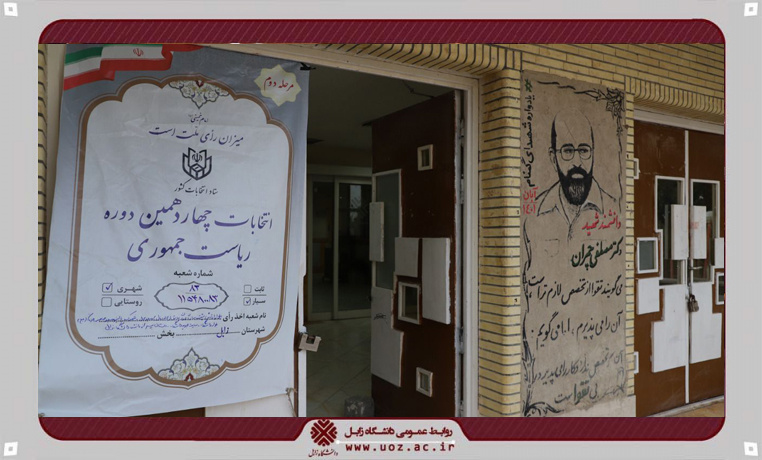 مرحله دوم
امام خمینی
میزان رأی ملت است
ستاد انتخابات کشور
انتخابات چهاردهمین دوره
ریاست جمهوری
شماره شعبه
۸۳
ثابت
سیار
شهری
روستایی
نام شعبه اخذ رأی
شهرستان زابل بخش
یادواره شهدای گمنام
آبان
دانشمند شهید
دکتر مصطفی چمران
می گویند تقوا از تخصص لازم تر است
آن را می پذیرم، اما می گویم
تقواست
روابط عمومی دانشگاه زابل
www.uoz.ac.ir
دانشگاه زابل